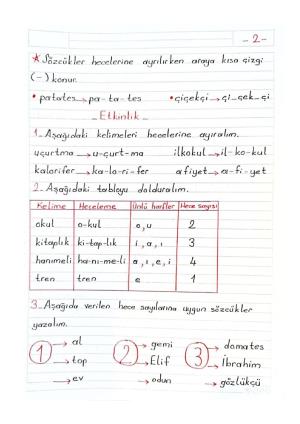 - 2 -
* Sözcükler hecelerine ayrılırken araya kısa çizgi
(-) konur.
• patates → pa-ta-tes • çiçekçi → çi-çek-çi
- Etkinlik -
1- Aşağıdaki kelimeleri hecelerine ayıralım.
uçurtma → u-çurt-ma ilkokul → il-ko-kul
kalorifer → ka-lo-ri-fer afiyet → a-fi-yet
2- Aşağıdaki tabloyu dolduralım.
Kelime Heceleme Ünlü harfler Hece sayısı
okul o-kul o, u 2
kitaplık ki-tap-lık i, a, ı 3
hanımeli ha-nı-me-li a, ı, e, i 4
tren tren e 1
3- Aşağıda verilen hece sayılarına uygun sözcükler
yazalım.
1 → al 2 → gemi 3 → domates
→ top → Elif → İbrahim
→ ev → odun → gözlükçü